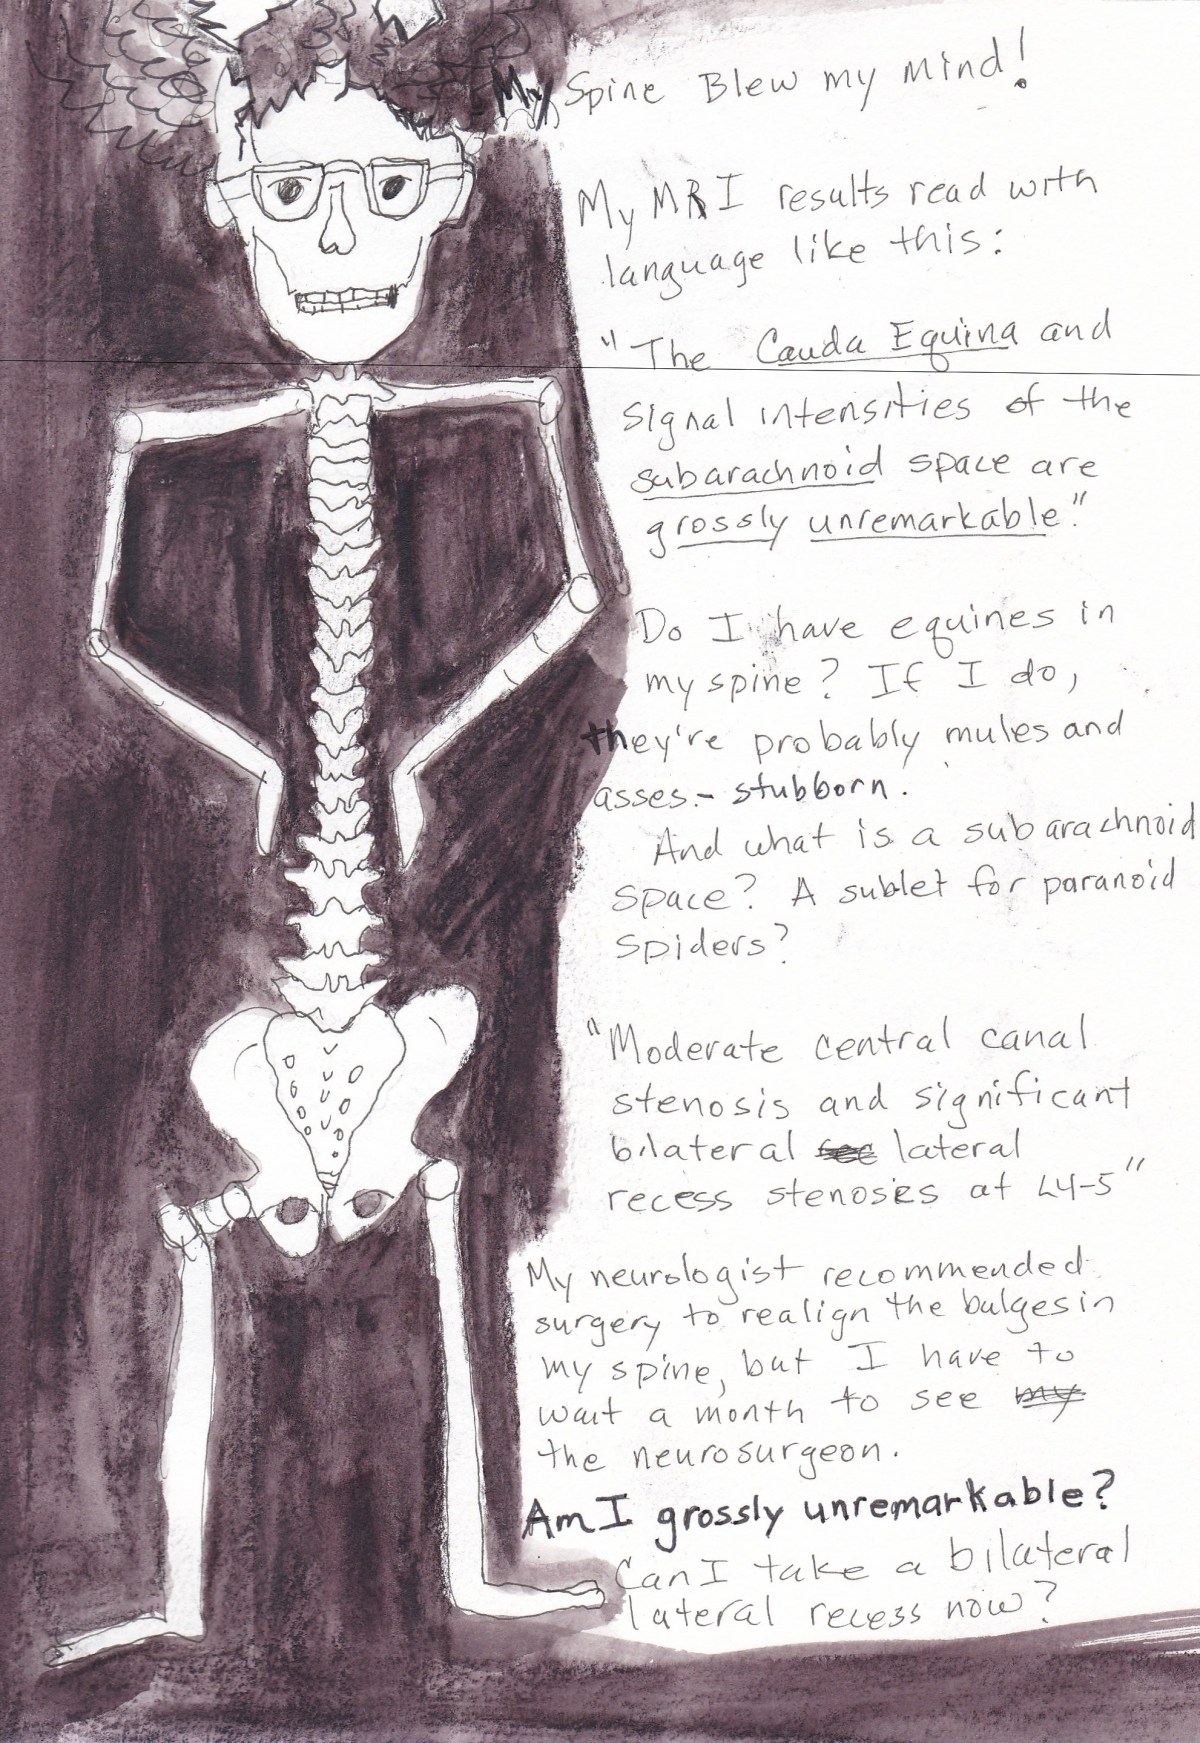 My Spine Blew my mind!
My MRI results read with
language like this:
"The Cauda Equina and
signal intensities of the
subarachnoid space are
grossly unremarkable."
Do I have equines in
my spine? If I do,
they're probably mules and
asses - stubborn.
And what is a subarachnoid
space? A sublet for paranoid
spiders?
"Moderate central canal
stenosis and significant
bilateral lateral
recess stenosis at L4-5"
My neurologist recommended
surgery to realign the bulges in
my spine, but I have to
wait a month to see my
the neurosurgeon.
Am I grossly unremarkable?
Can I take a bilateral
lateral recess now?